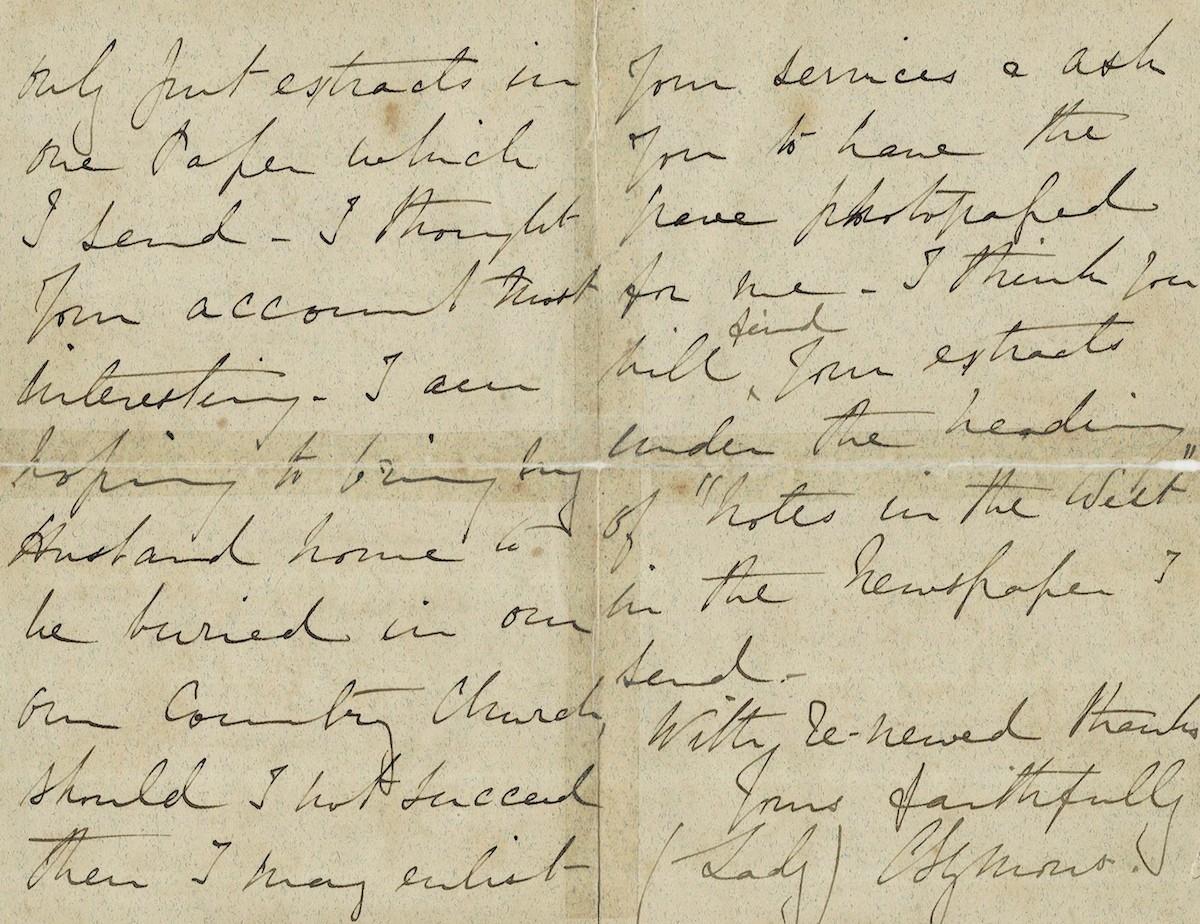 only put extracts in
one Paper which
I send - I thought
your account most
interesting - I am
hoping to bring my
Husband home to
be buried in our
own Country Church,
should I not succeed
then I may enlist
your services & ask
you to have the
grave photographed
for me - I think you
will find your extracts
under the heading
of "Notes in the West"
in the Newspaper I
send -
With re-newed thanks
Yours faithfully
(Lady) C Symons.